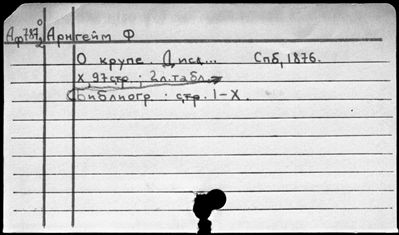 Аф 787 0/2 Арнгейм Ф
О крупе. Дисс... Спб, 1876.
х 97 стр.; 2 л. табл.
Библиогр: стр. I-X.